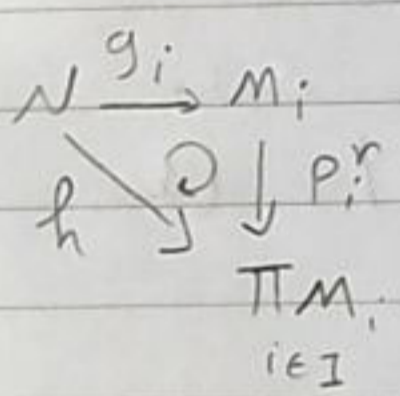 N g_i → M_i
h ↻ ↓ p_i^r
∏ M_i
i ∈ I